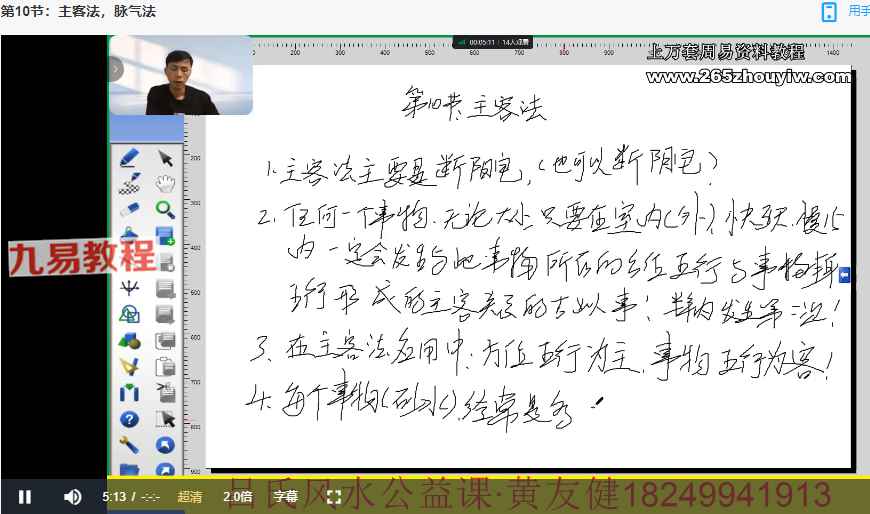 第10节：主客法，脉气法
用手
00:05:11 14人观看
上万套周易资料教程
www.265zhouyiw.com
第10节、主客法
1.主客法主要是断阳宅，(也可以断阴宅)
2.任何一个事物.无论大小只要在室内(外)，快3天.慢15
内一定会发生与此事物所在的方位五行与事物
五行形成的主客关系的吉凶事！半年内发生第二次！
3、在主客法应用中，方位五行为主，事物五行为客！
4.每个事物(砂水)经常是多
九易教程
吕氏风水公益课·黄友健18249941913
5:13 / -:-:- 超清 2.0倍 字幕